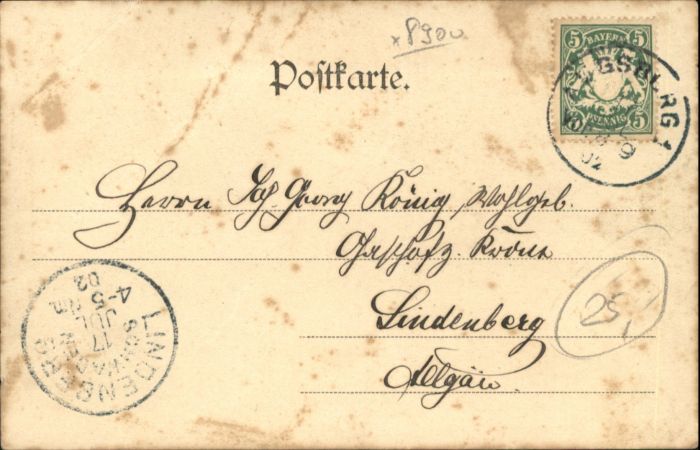 x8900
Postkarte.
BAYERN
5 5
5 PFENNIG 5
AUGSBURG 1
VORM
9
02
Herrn Joh. Georg König, Wohlgeb.
Gasthof z. Krone
Lindenberg
Allgäu
25,-
LINDENBERG
17
JUL
4-5 Nm
02